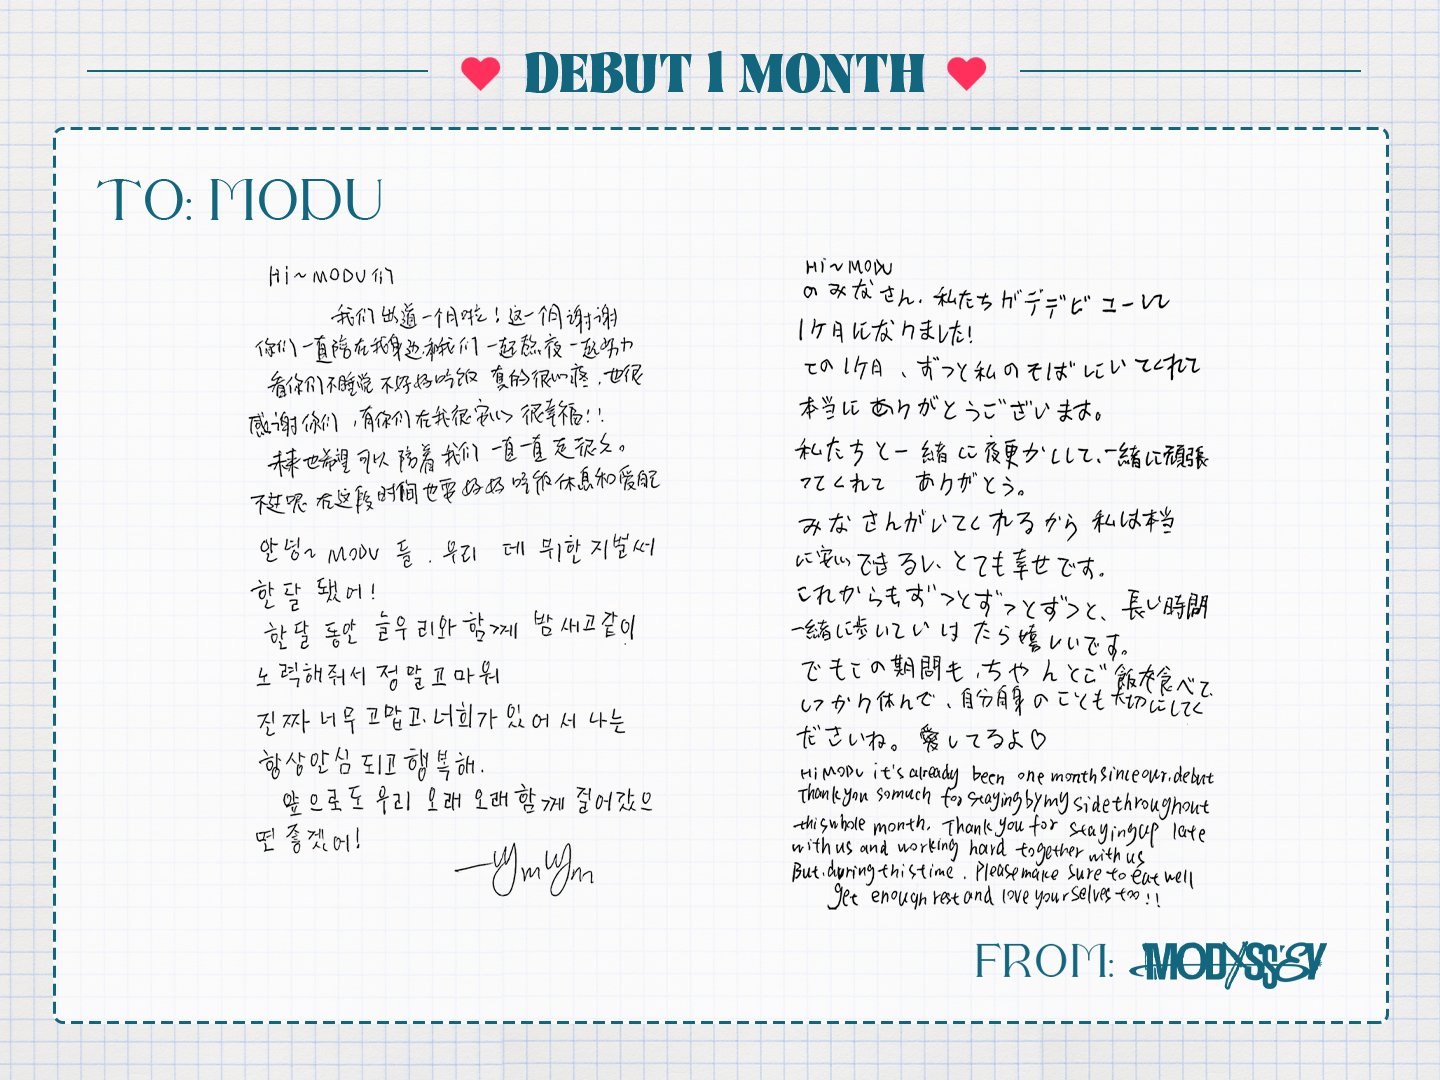 DEBUT 1 MONTH
TO: MODU
Hi~MODU们
我们出道一个月啦!这一个月谢谢
你们一直陪在我身边和我们一起熬夜一起努力
看你们不睡觉不好好吃饭 真的很心疼,也很
感谢你们,有你们在我很安心 很幸福!!
未来也希望可以陪着我们一直一直走很久。
不过呢 在这段时间也要好好吃饭休息和爱自己
안녕~ MODU 들. 우리 데뷔한지벌써
한달 됐어!
한달 동안 늘우리와함께 밤새고같이
노력해줘서 정말고마워
진짜 너무 고맙고. 너희가 있어서 나는
항상안심되고행복해.
앞으로도 우리 오래오래함께 걸어갔으
면 좋겠어!
ymym
Hi~MODU
のみなさん、私たちがデデビューして
1ケ月になりました!
この1ケ月、ずっと私のそばにいてくれて
本当にありがとうございます。
私たちと一緒に夜更かしして、一緒に頑張
ってくれて ありがとう。
みなさんがいてくれるから 私は本当
に安心できるし、とても幸せです。
これからもずっとずっとずっと、長い時間
一緒に歩いていけたら嬉しいです。
でもこの期間も、ちゃんとご飯を食べて、
しっかり休んで、自分自身のことも大切にしてく
ださいね。愛してるよ♡
Hi MODU it's already been one month since our debut
Thank you so much for staying by my side throughout
this whole month. Thank you for staying up late
with us and working hard together with us
But, during this time. Please make sure to eat well
get enough rest and love yourselves too!!
FROM: MODYSSEY